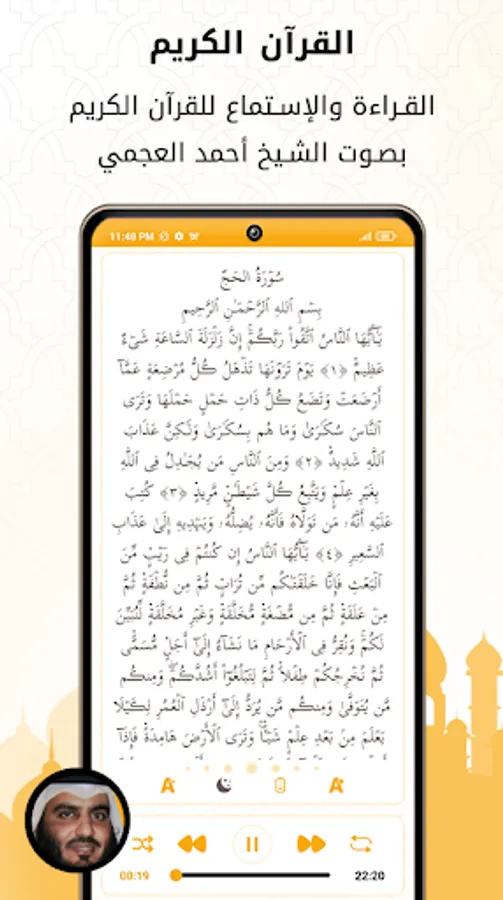 القرآن الكريم
القراءة والإستماع للقرآن الكريم
بصوت الشيخ أحمد العجمي
11:48 PM
سُورَةُ الحَجِّ
بِسْمِ ٱللَّهِ ٱلرَّحْمَٰنِ ٱلرَّحِيمِ
يَٰٓأَيُّهَا ٱلنَّاسُ ٱتَّقُوا۟ رَبَّكُمْ ۚ إِنَّ زَلْزَلَةَ ٱلسَّاعَةِ شَىْءٌ
عَظِيمٌ ﴿١﴾ يَوْمَ تَرَوْنَهَا تَذْهَلُ كُلُّ مُرْضِعَةٍ عَمَّآ
أَرْضَعَتْ وَتَضَعُ كُلُّ ذَاتِ حَمْلٍ حَمْلَهَا وَتَرَى
ٱلنَّاسَ سُكَٰرَىٰ وَمَا هُم بِسُكَٰرَىٰ وَلَٰكِنَّ عَذَابَ
ٱللَّهِ شَدِيدٌ ﴿٢﴾ وَمِنَ ٱلنَّاسِ مَن يُجَٰدِلُ فِى ٱللَّهِ
بِغَيْرِ عِلْمٍ وَيَتَّبِعُ كُلَّ شَيْطَٰنٍ مَّرِيدٍ ﴿٣﴾ كُتِبَ
عَلَيْهِ أَنَّهُۥ مَن تَوَلَّاهُ فَأَنَّهُۥ يُضِلُّهُۥ وَيَهْدِيهِ إِلَىٰ عَذَابِ
ٱلسَّعِيرِ ﴿٤﴾ يَٰٓأَيُّهَا ٱلنَّاسُ إِن كُنتُمْ فِى رَيْبٍ مِّنَ
ٱلْبَعْثِ فَإِنَّا خَلَقْنَٰكُم مِّن تُرَابٍ ثُمَّ مِن نُّطْفَةٍ ثُمَّ
مِنْ عَلَقَةٍ ثُمَّ مِن مُّضْغَةٍ مُّخَلَّقَةٍ وَغَيْرِ مُخَلَّقَةٍ لِّنُبَيِّنَ
لَكُمْ ۚ وَنُقِرُّ فِى ٱلْأَرْحَامِ مَا نَشَآءُ إِلَىٰٓ أَجَلٍ مُّسَمًّى
ثُمَّ نُخْرِجُكُمْ طِفْلًا ثُمَّ لِتَبْلُغُوٓا۟ أَشُدَّكُمْ ۖ وَمِنكُم
مَّن يُتَوَفَّىٰ وَمِنكُم مَّن يُرَدُّ إِلَىٰٓ أَرْذَلِ ٱلْعُمُرِ لِكَيْلَا
يَعْلَمَ مِنۢ بَعْدِ عِلْمٍ شَيْـًٔا ۚ وَتَرَى ٱلْأَرْضَ هَامِدَةً فَإِذَآ
A A
00:19 22:20